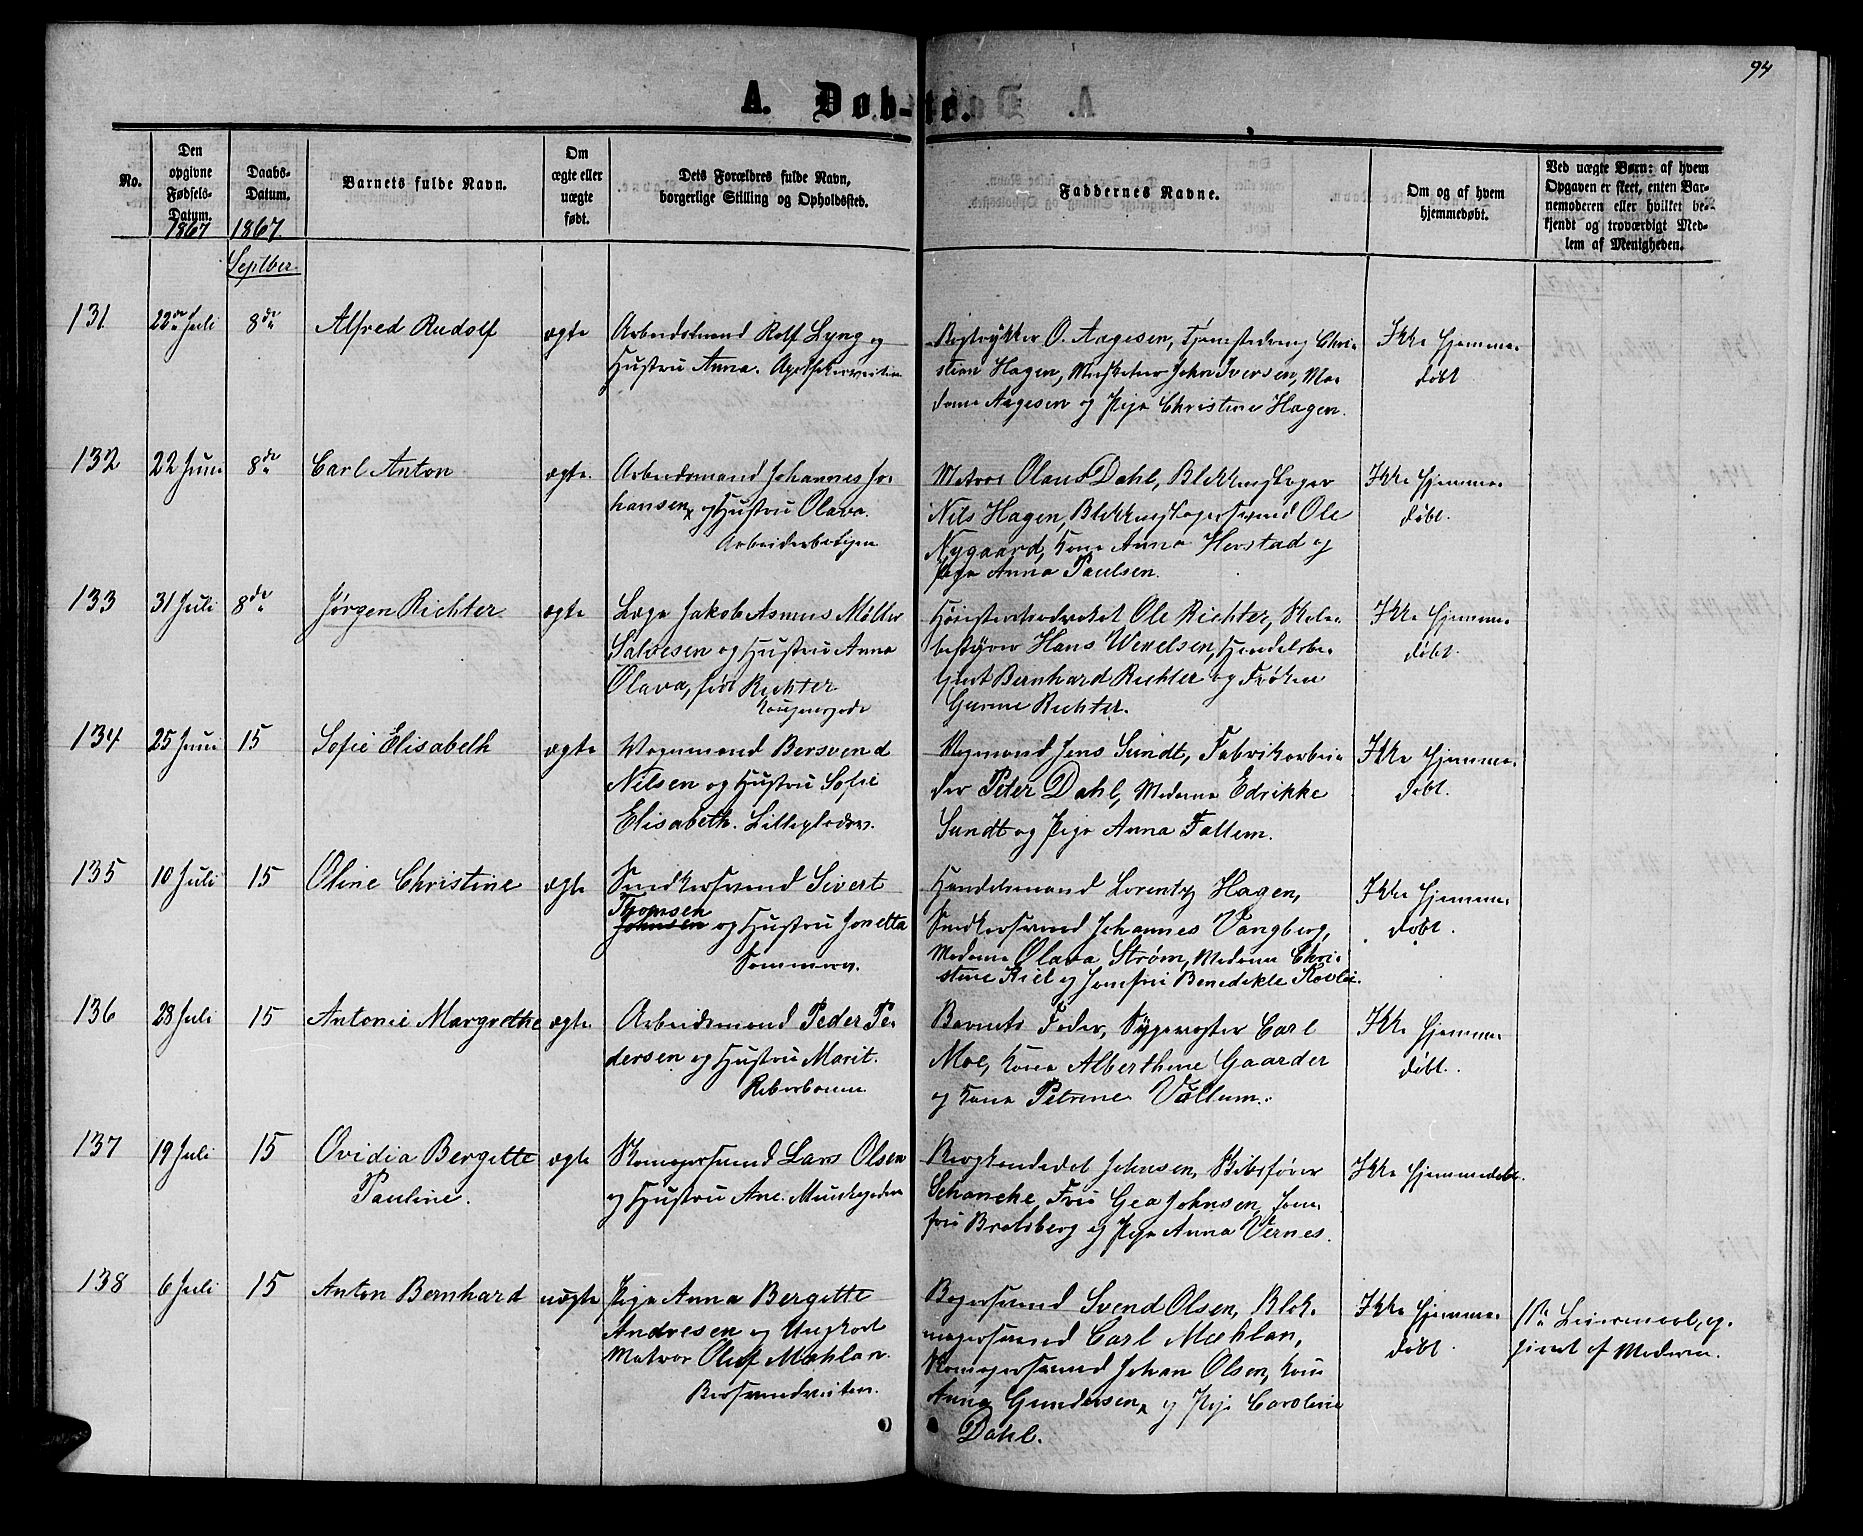 94
A. Døb-te.
No.
Den opgivne Fødsels-Datum.
Daabs-Datum.
Barnets fulde Navn.
Om ægte eller uægte født.
Dets Forældres fulde Navn, borgerlige Stilling og Opholdssted.
Faddernes Navne.
Om og af hvem hjemmedøbt.
Ved uægte Børn: af hvem Opgaven er skeet, enten Barnemoderen eller hvilket bekjendt og troværdigt Medlem af Menigheden.
1867 1867
Septber
131 22de Juli 8de Alfred Rudolf ægte
Arbeidsmand Rolf Lyng og
Hustru Anna. Apothekerveiten
Bogtrykker O. Aagesen, Chri-
stian Hagen, Musketer John Iversen, Ma-
dame Aagesen og Pige Christine Hagen.
Ikke hjemme-
døbt
132 22 Juni 8de Carl Anton ægte.
Arbeidsmand Johannes Jo-
hansen og Hustru Olava.
Matros Olaus Dahl, Blikkenslager
Nils Hagen, Blikkenslagersvend Ole
Nygaard, Kone Anna Herstad og
Pige Anna Paulsen.
Ikke hjemme-
døbt.
133 31 Juli 8de Jørgen Richter ægte
Læge Jakob Asmus Møller
Salvesen og Hustru Anna
Olava, født Richter
Kongensgade
Høiesteretsadvokat Ole Richter, Skole-
bestyrer Hans Wexelsen, Handelsbe-
tjent Bernhard Richter og Frøken
Richter.
Ikke hjemme-
døbt.
134 25 Juni 15 Sofie Elisabeth ægte
Vognmand Bersvend
Nilsen og Hustru Sofie
Elisabeth.
Vognmand Jens Sundt, Fabrikarbei-
der Peter Dahl, Madame Edrikke
Sundt og Pige Anna Fallem.
Ikke hjemme-
døbt.
135 10 Juli 15 Oline Christine ægte
Snedkersvend Sivert
Thomsen
Johnsen og Hustru Jonetta
Handelsmand Lorentz Hagen,
Snedkersvend Johannes Vangberg,
Madame Olava Strøm, Madame Chri-
stine Kiel og Jomfru Benedikte
Ikke hjemme-
døbt.
136 28 Juli 15 Antonie Margrethe ægte
Arbeidsmand Peder Pe-
dersen og Hustru Marit.
Barnets Fader, Sygevogter Carl
Moe, Kone Alberthine Gaarder
og Kone Petrine Vollum.
Ikke hjemme-
døbt.
137 19 Juli 15 Ovidia Bergette ægte
Pauline.
Skomagersvend Lars Olsen
og Hustru Ane. Munkegaden
Bergkandidat Johnsen, Skibsfører
Schancke, Fru Gea Johnsen, Jom-
fru Bratsberg og Pige Anna Vernes.
Ikke hjemmedøbt.
138 6 Juli 15 Anton Bernhard uægte
Pige Anna Bergette
Andresen og Ungkarl
Matros Oluf Mæhlan.
Bersvendveiten.
Bagersvend Svend Olsen, Blok-
magersvend Carl Mæhlan,
Skomagersvend Johan Olsen, Kone
Anna Gundersen, og Pige Caroline
Dahl.
Ikke hjemme-
døbt.
1ste Leiermaal, op-
givet af Moderen.